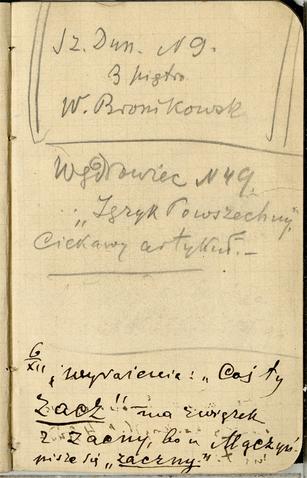 Sz. Dun. N 9.
3 piętro
W. Bronikowsk
Wędrowiec N 49.
"Język Powszechny"
Ciekawy artykuł.—
6/XII wyrażenie: "Coś ty
zacz" ma związek
z zacny, bo u Mączyń.
pisze się "zaczny."